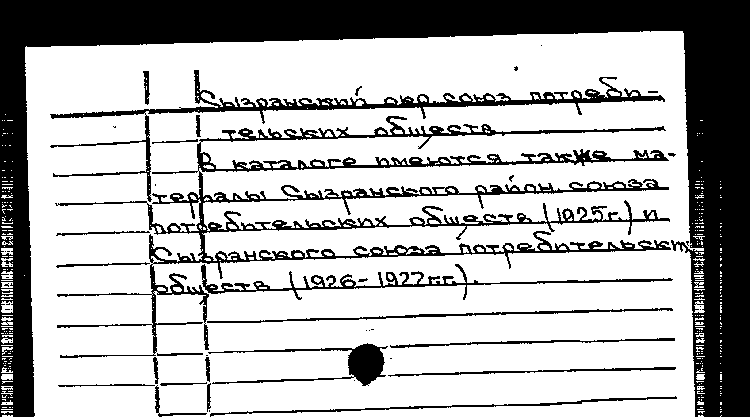 Сызранский окр. союз потреби-
тельских обществ.
В каталоге имеются также ма-
териалы Сызранского район. союза
потребительских обществ (1925г.) и
Сызранского союза потребительских
обществ (1926-1927гг.).